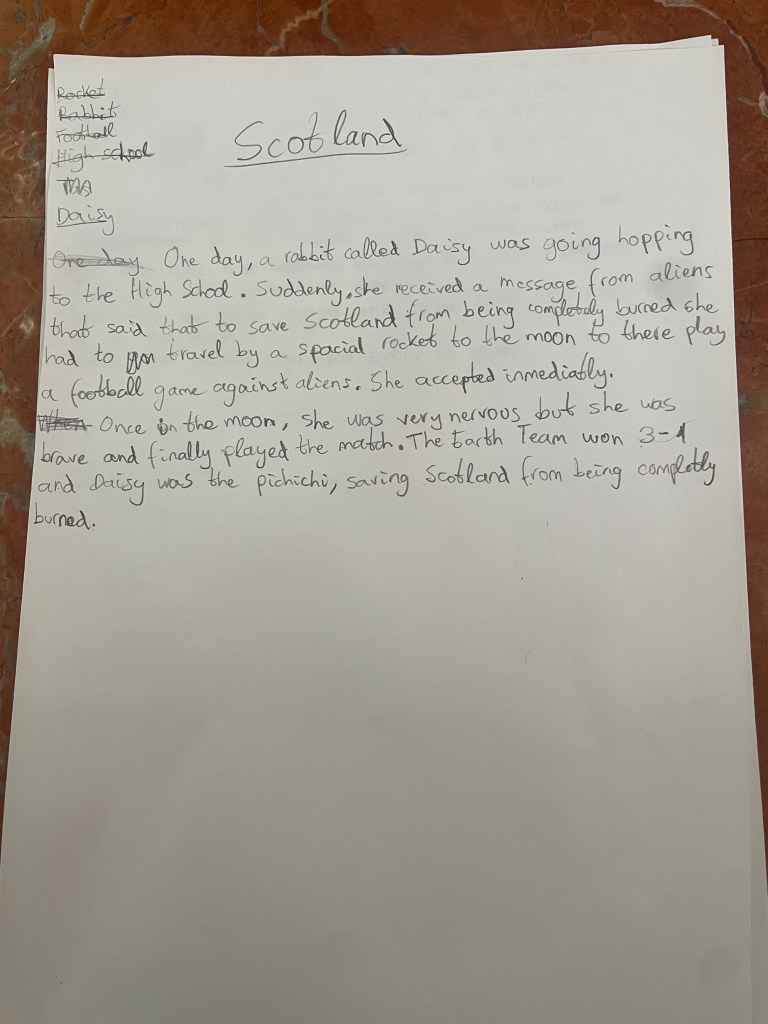 Rocket
Rabbit
Football
High school
Scotland
Daisy
One day One day, a rabbit called Daisy was going hopping
to the High School. Suddenly, she received a message from aliens
that said that to save Scotland from being completaly burned she
had to travel by a spacial rocket to the moon to there play
a football game against aliens. She accepted inmediatly.
When Once in the moon, she was very nervous but she was
brave and finally played the match. The Earth Team won 3-1
and Daisy was the pichichi, saving Scotland from being completly
burned.